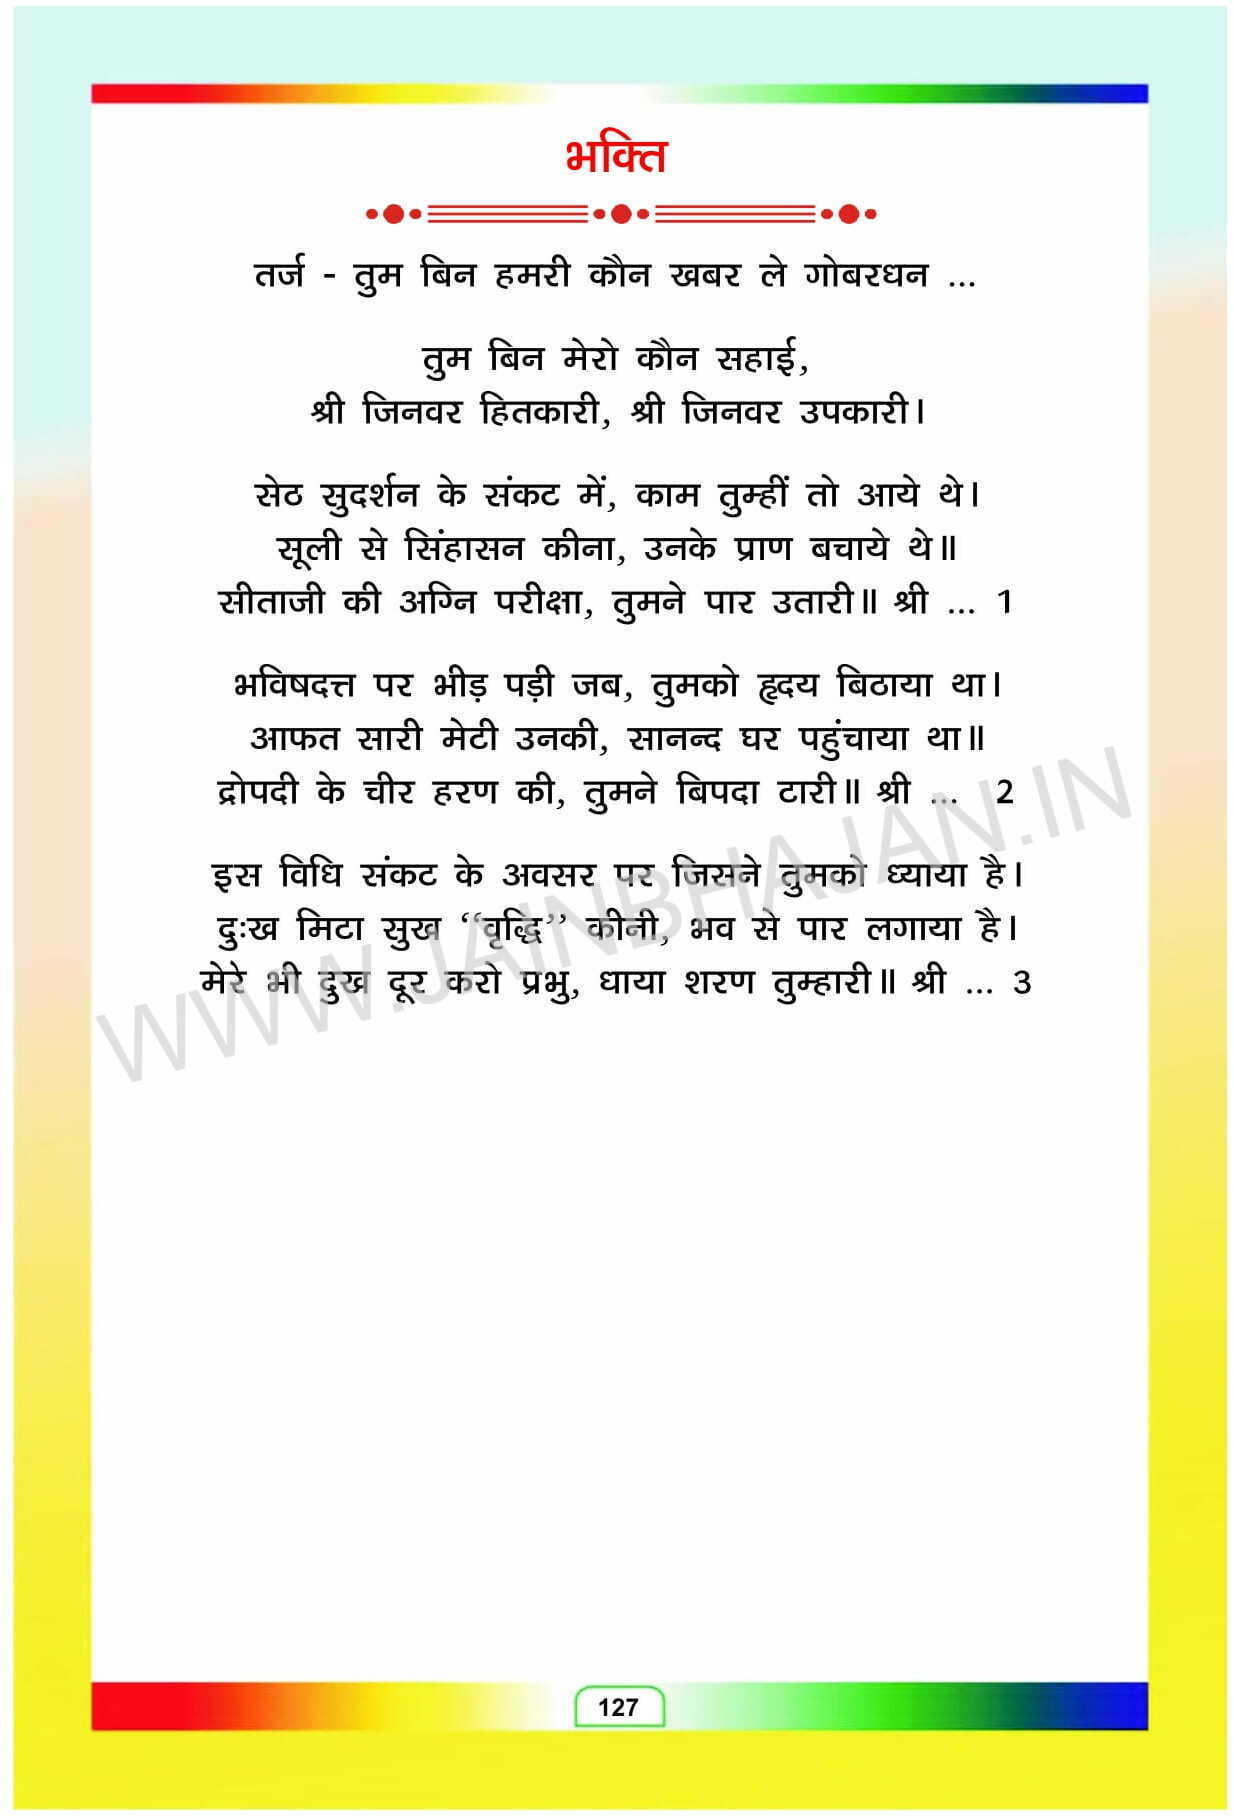 भक्ति
तर्ज - तुम बिन हमरी कौन खबर ले गोबरधन ...
तुम बिन मेरो कौन सहाई,
श्री जिनवर हितकारी, श्री जिनवर उपकारी।
सेठ सुदर्शन के संकट में, काम तुम्हीं तो आये थे।
सूली से सिंहासन कीना, उनके प्राण बचाये थे॥
सीताजी की अग्नि परीक्षा, तुमने पार उतारी॥ श्री ... 1
भविषदत्त पर भीड़ पड़ी जब, तुमको हृदय बिठाया था।
आफत सारी मेटी उनकी, सानन्द घर पहुंचाया था॥
द्रोपदी के चीर हरण की, तुमने बिपदा टारी॥ श्री ... 2
इस विधि संकट के अवसर पर जिसने तुमको ध्याया है।
दुःख मिटा सुख “वृद्धि” कीनी, भव से पार लगाया है।
मेरे भी दुख दूर करो प्रभु, धाया शरण तुम्हारी॥ श्री ... 3
WWW.JAINBHAJAN.IN
127